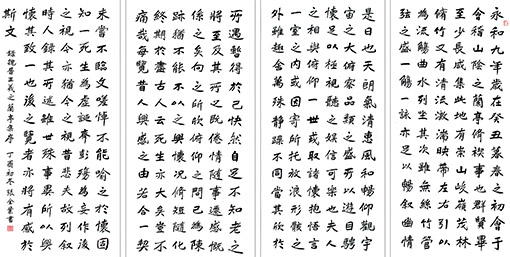 永和九年歲在癸丑暮春之初會于
會稽山陰之蘭亭脩禊事也群賢畢
至少長咸集此地有崇山峻嶺茂林
脩竹又有清流激湍映帶左右引以
為流觴曲水列坐其次雖無絲竹管
弦之盛一觴一詠亦足以暢叙幽情
是日也天朗氣清惠風和暢仰觀宇
宙之大俯察品類之盛所以遊目騁
懷足以極視聽之娛信可樂也夫人
之相與俯仰一世或取諸懷抱悟言
一室之內或因寄所托放浪形骸之
外雖趣舍萬殊靜躁不同當其欣於
所遇暫得於己快然自足不知老之
將至及其所之既倦情隨事遷感慨
係之矣向之所欣俯仰之間已為陳
跡猶不能不以之興懷況脩短隨化
終期於盡古人云死生亦大矣豈不
痛哉每覽昔人興感之由若合一契
未嘗不臨文嗟悼不能喻之於懷固
知一死生為虛誕齊彭殤為妄作後
之視今亦猶今之視昔悲夫故列叙
時人錄其所述雖世殊事異所以興
懷其致一也後之覽者亦將有感於
斯文 錄魏晉王羲之蘭亭集序 丁酉初冬張金葉書